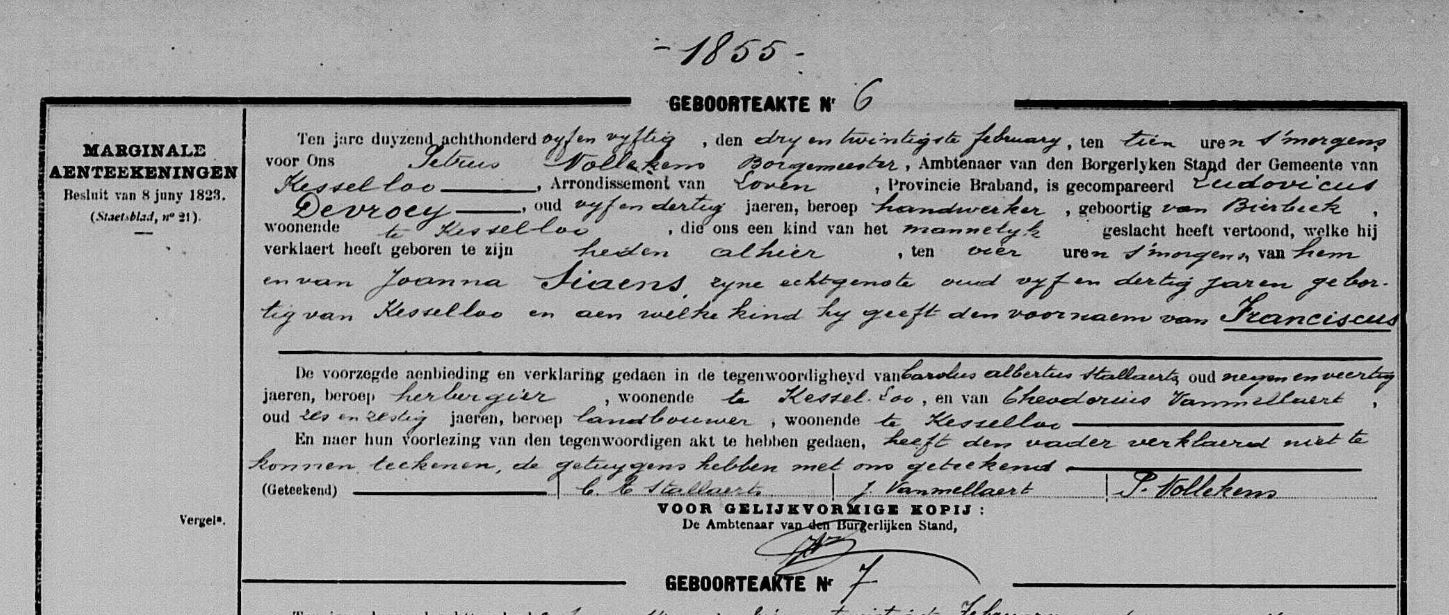 - 1855 -
GEBOORTEAKTE Nr 6
MARGINALE
AENTEEKENINGEN
Besluit van 8 juny 1823.
(Staetsblad, nº 21).
Ten jare duyzend achthonderd vyf en vyftig , den dry en twintigste february, ten tien uren s'morgens
voor Ons Petrus Nollekens Borgemeester, Ambtenaer van den Borgerlyken Stand der Gemeente van
Kesselloo , Arrondissement van Loven , Provincie Braband, is gecompareerd Ludovicus
Devroey , oud vyf en dertig jaeren, beroep handwerker , geboortig van Bierbeek ,
woonende te Kesselloo , die ons een kind van het mannelyk geslacht heeft vertoond, welke hij
verklaert heeft geboren te zijn heden alhier , ten vier uren s'morgens, van hem
en van Joanna Siaens, zyne echtgenote oud vyf en dertig jaren gebor-
tig van Kesselloo en aen welke kind hy geeft den voornaem van Franciscus
De voorzegde aenbieding en verklaring gedaen in de tegenwoordigheyd van Carolus Albertus Stallaerts, oud negen en veertig
jaeren, beroep herbergier , woonende te Kessel-Loo, en van Theodorius Vanmellaert ,
oud zes en zestig jaeren, beroep landbouwer , woonende te Kesselloo
En naer hun voorlezing van den tegenwoordigen akt te hebben gedaen, heeft den vader verklaerd niet te
konnen teekenen, de getuygens hebben met ons geteekend
(Geteekend) C. A. Stallaerts J. Vanmellaert P. Nollekens
VOOR GELIJKVORMIGE KOPIJ :
Vergelⁿ.
De Ambtenaar van den Burgerlijken Stand,
GEBOORTEAKTE Nr 7